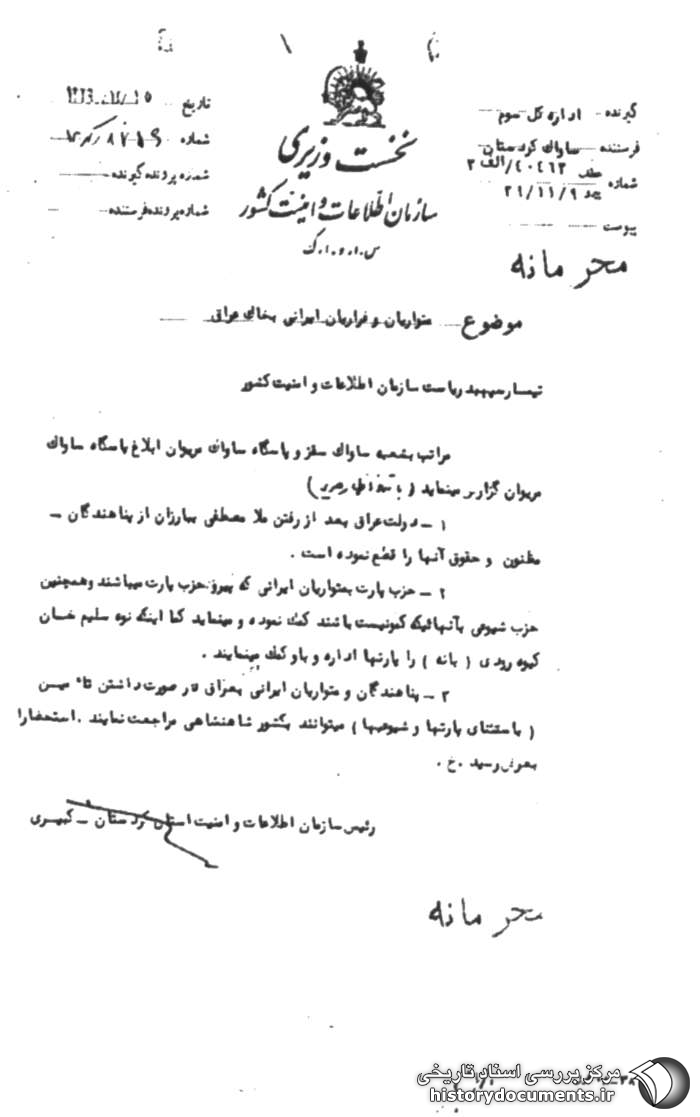 گیرنده اداره کل سوم
فرستنده ساواک کردستان
شماره ۴۰۴۶۲/الف ۲
۴۱/۱۱/۹
پیوست
تاریخ
شماره
شماره پرونده گیرنده
شماره پرونده فرستنده
نخست وزیری
سازمان اطلاعات و امنیت کشور
س.ا.و.ا.ک
محرمانه
موضوع متواریان و فراریان ایرانی بخاک عراق
تیمسار سپهبد ریاست سازمان اطلاعات و امنیت کشور
مراتب بشعبه ساواک سقز و پاسگاه ساواک مریوان ابلاغ پاسگاه ساواک
مریوان گزارش مینماید
۱ – دولت عراق بعد از رفتن ملا مصطفی بارزان از پناهندگان –
مظنون و حقوق آنها را قطع نموده است .
۲ – حزب پارت بمتواریان ایرانی که پیرو حزب پارت میباشند وهمچنین
حزب شیوعی بآنهائیکه کمونیست باشند کمک نموده و مینماید کما اینکه نوه سلیم خان
کیوه رودی ( بانه ) را پارتها اداره و باو کمک مینمایند .
۳ – پناهندگان و متواریان ایرانی بعراق در صورت داشتن تامین
( باستثنای پارتها و شیوعیها ) میتوانند بکشور شاهنشاهی مراجعت نمایند . استحضارا
بعرض رسید . خ .
رئیس سازمان اطلاعات و امنیت استان کردستان – کبیری
محرمانه
مرکز بررسی اسناد تاریخی
historydocuments.ir